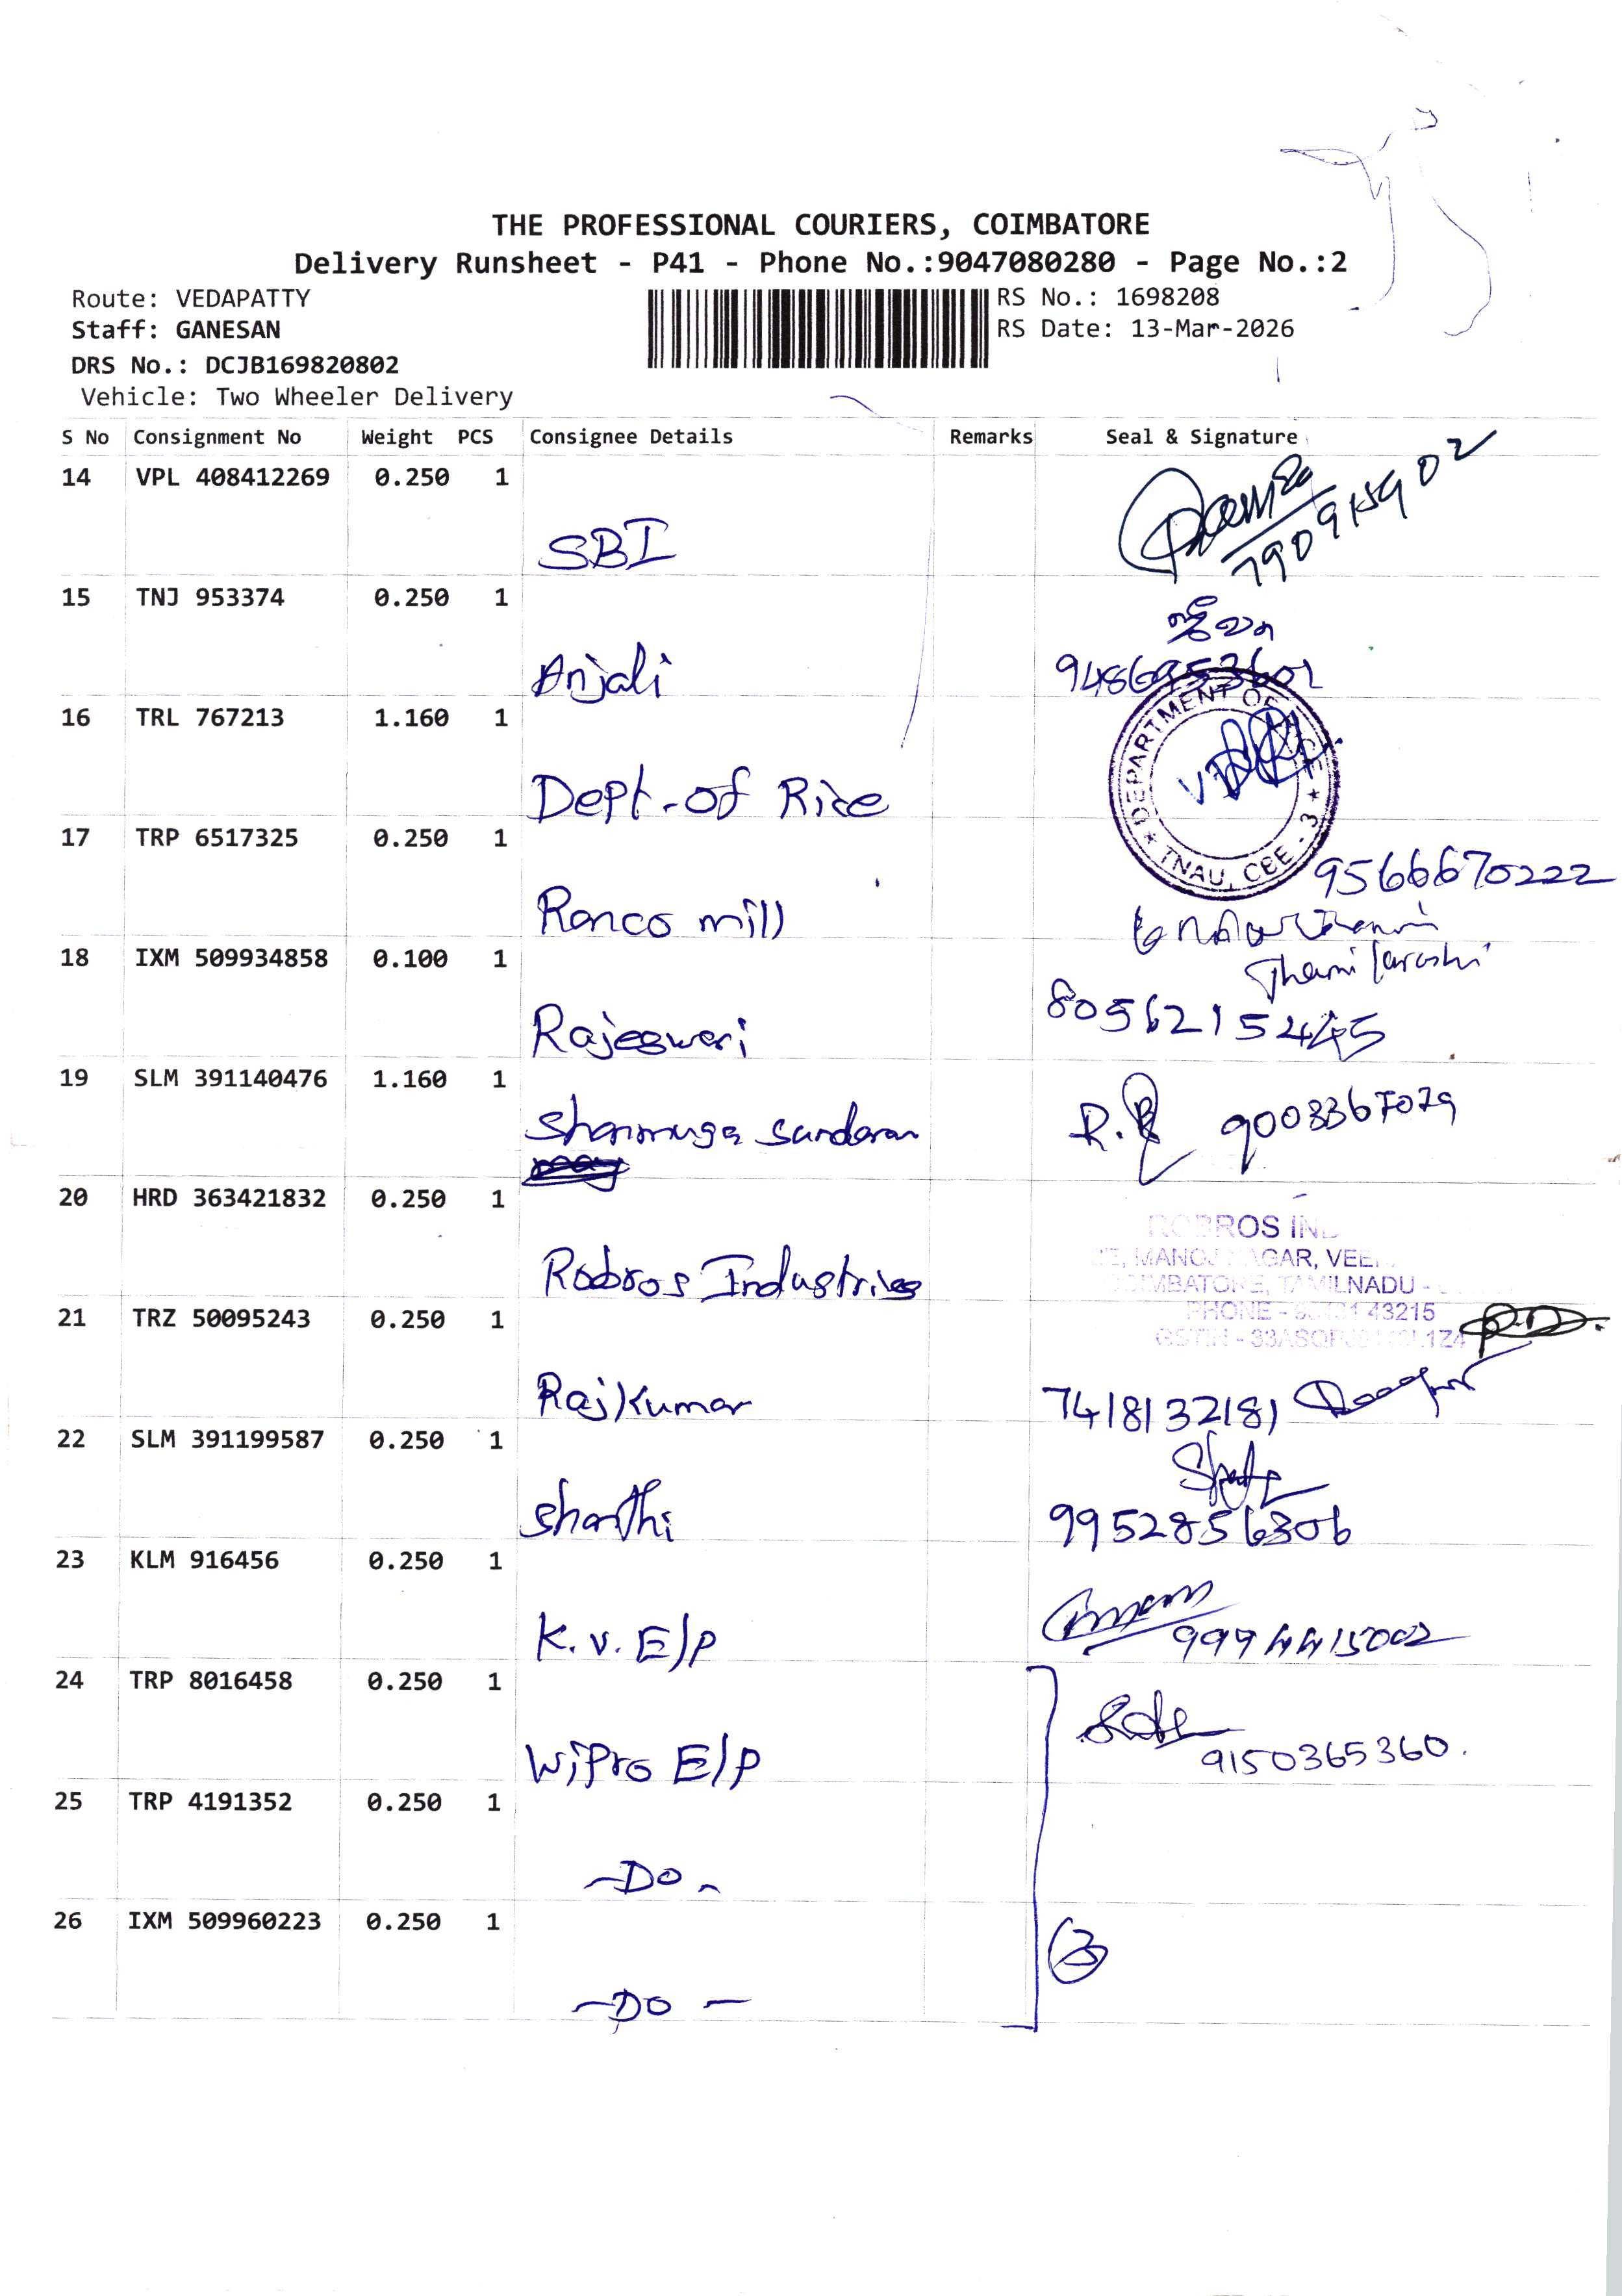 THE PROFESSIONAL COURIERS, COIMBATORE
Delivery Runsheet - P41 - Phone No.:9047080280 - Page No.:2
Route: VEDAPATTY
RS No.: 1698208
Staff: GANESAN
RS Date: 13-Mar-2026
DRS No.: DCJB169820802
Vehicle: Two Wheeler Delivery
S No Consignment No Weight PCS Consignee Details Remarks Seal & Signature
14 VPL 408412269 0.250 1
SBI
15 TNJ 953374 0.250 1
Anjali
16 TRL 767213 1.160 1
DEPARTMENT OF
TNAU, CBE - 3
Dept. of Rice
17 TRP 6517325 0.250 1
9566670222
Ranco mill
18 IXM 509934858 0.100 1
Rajeswari
19 SLM 391140476 1.160 1
Shanmuga Sundaram
9003367079
20 HRD 363421832 0.250 1
Robros Industries
GAR, VEE
TAMILNADU -
21 TRZ 50095243 0.250 1
PHONE - 43215
Rajkumar
7418132181
22 SLM 391199587 0.250 1
Sharthi
9952856306
23 KLM 916456 0.250 1
K.V. E/P
9994415002
24 TRP 8016458 0.250 1
WiPro E/P
9150365360.
25 TRP 4191352 0.250 1
-DO-
26 IXM 509960223 0.250 1
3
-DO-